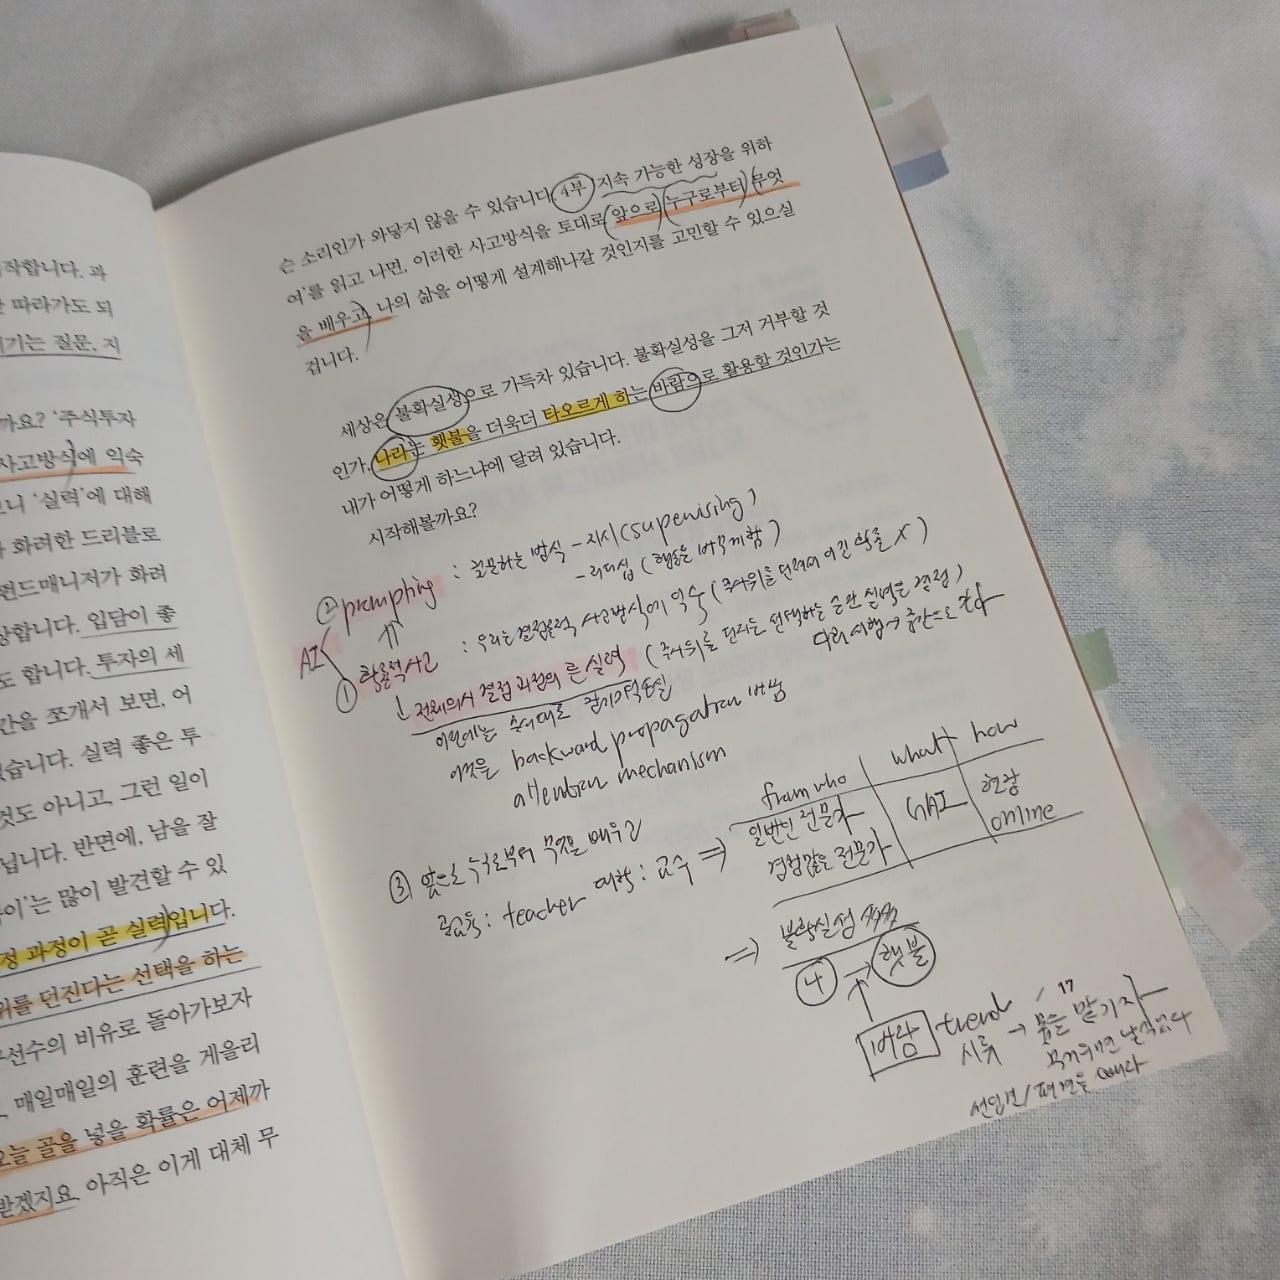 작합니다. 과
따라가도 되
기는 질문, 지
까요? '주식투자
사고방식에 익숙
니 '실력'에 대해
화려한 드리블로
펀드매니저가 화려
상합니다. 입담이 좋
도 합니다. 투자의 세
간을 쪼개서 보면, 어
습니다. 실력 좋은 투
것도 아니고, 그런 일이
닙니다. 반면에, 남을 잘
이'는 많이 발견할 수 있
정 과정이 곧 실력입니다.
위를 던진다는 선택을 하는
선수의 비유로 돌아가보자
매일매일의 훈련을 게을리
오늘 골을 넣을 확률은 어제까
받겠지요. 아직은 이게 대체 무
슨 소리인가 와닿지 않을 수 있습니다. '4부 지속 가능한 성장을 위하
여'를 읽고 나면, 이러한 사고방식을 토대로 앞으로 누구로부터 무엇
을 배우고, 나의 삶을 어떻게 설계해나갈 것인지를 고민할 수 있으실
겁니다.
세상은 불확실성으로 가득차 있습니다. 불확실성을 그저 거부할 것
인가, 나라는 횃불을 더욱더 타오르게 하는 바람으로 활용할 것인가는
내가 어떻게 하느냐에 달려 있습니다.
시작해볼까요?
② prompting : 질문하는 방식 - 지시 (supervising)
- 리더십 (행동을 바꾸게 함)
AI
① 확률적 사고 : 우리는 결정론적 사고방식에 익숙 (주사위를 던져서 이긴 확률 X)
전체의사 결정 과정의 른 실력 (주사위를 던지는 선택하는 순간 실력은 결정)
다회 시행 → 중간으로
이전에는 순서대로 장기기억손실
이것을 backward propagation
attention mechanism
③ 앞으로 누구로부터 무엇을 배우고
공교육 : teacher 대학 : 교수 ⇒
from who what how
일반인 전문가 GAI 현장
경험많은 전문가 online
⇒ 불확실성
4 → 횃불
바람 trend
시류 →
말기자
선입견/편견을